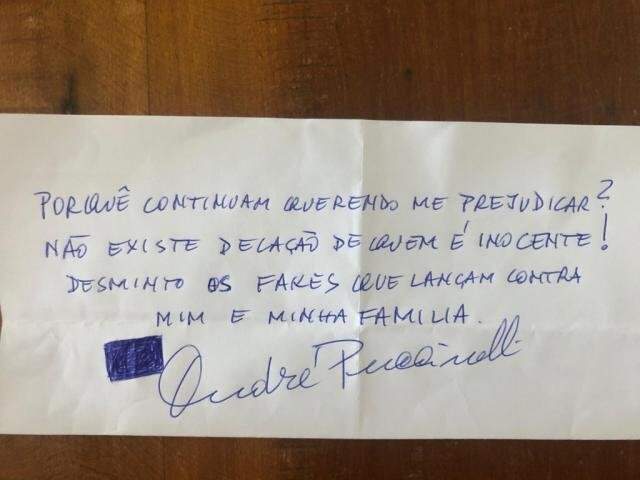 PORQUÊ CONTINUAM QUERENDO ME PREJUDICAR?
NÃO EXISTE DELAÇÃO DE QUEM É INOCENTE!
DESMINTO OS FAKES QUE LANÇAM CONTRA
MIM E MINHA FAMILIA.
André Puccinelli